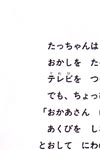 たっちゃんは
おかしを　た
テレビを　つ
でも、ちょっ
「おかあさん　は
あくびを　し
とおして　にわ